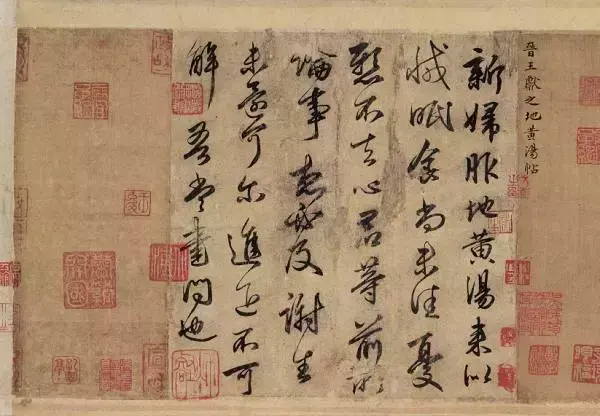 晉王獻之地黃湯帖
新婦服地黄湯来似
減眠食尚未佳憂
懸不去心君等前所
論事想必及謝生
未還可尔進退不可
解吾當書問也